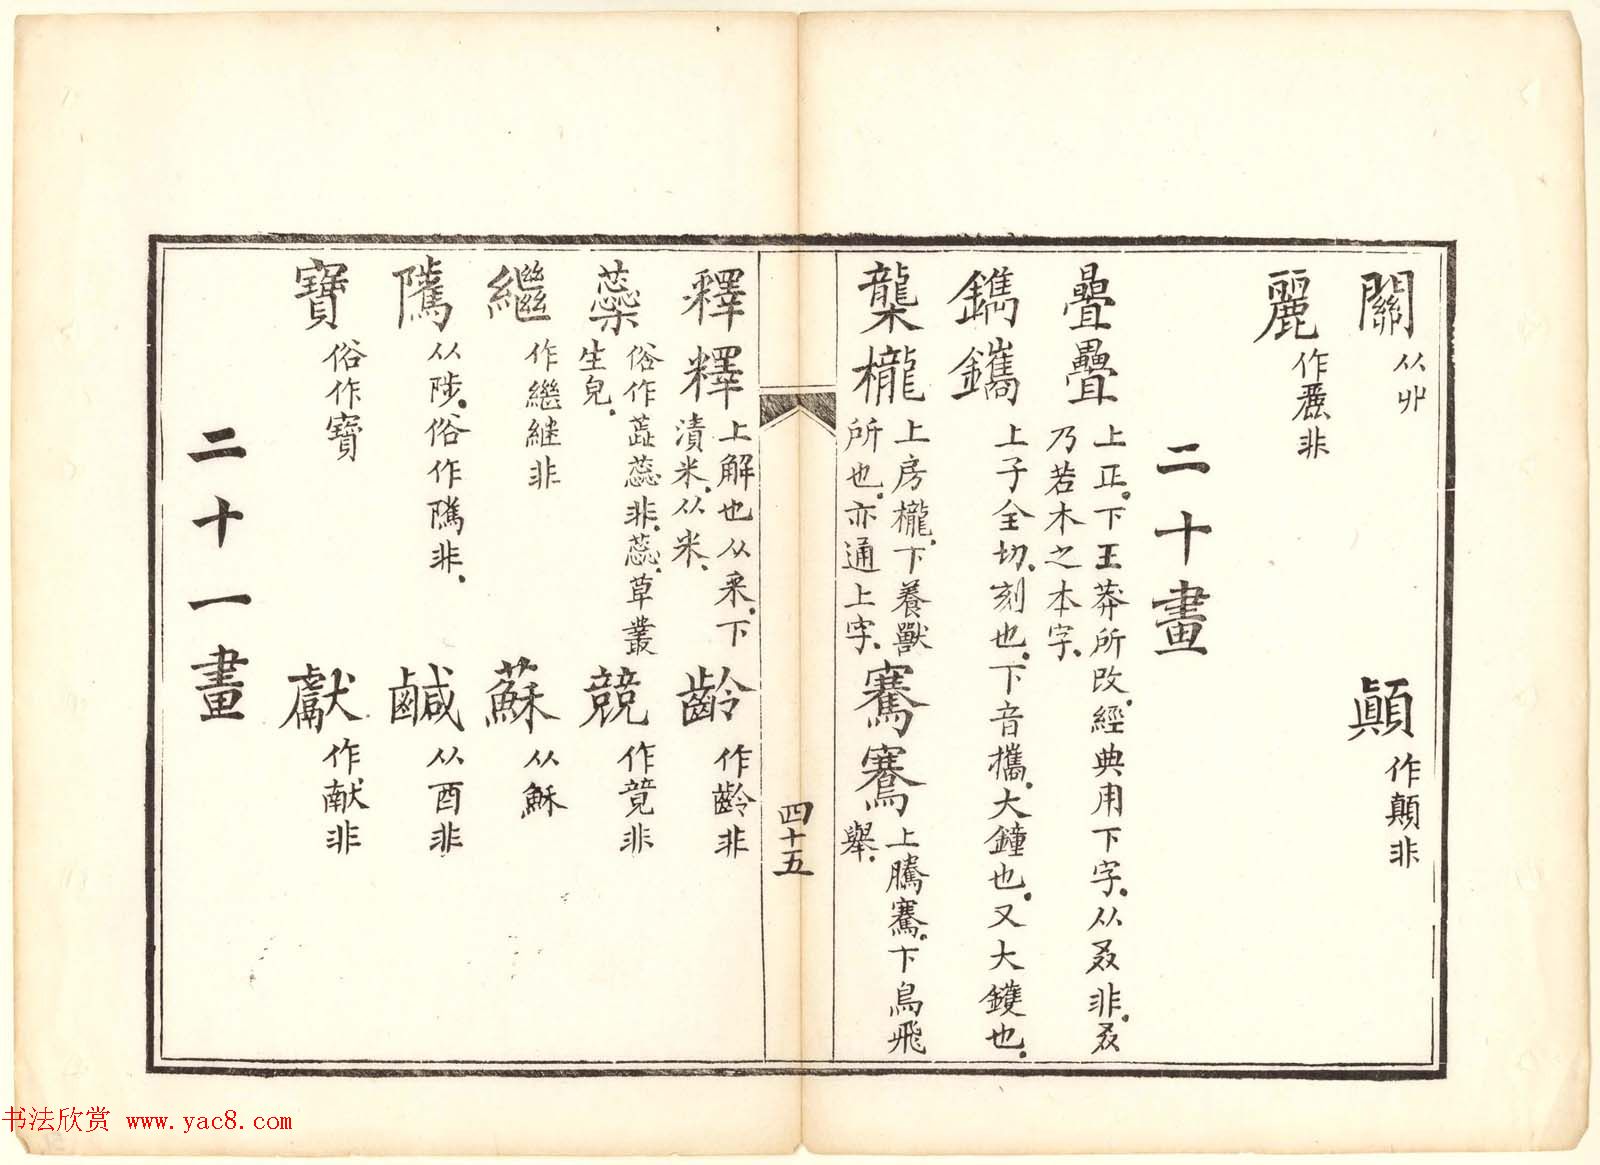 關 从丱 顚 作顛非
麗 作䴡非
二十畫
疊疉 上正。下王莽所改。經典用下字。从叒非。叒乃若木之本字。
鐫鑴 上子全切。刻也。下音攜。大鐘也。又大鑊也。
櫳 上房櫳。下養獸所也。亦通上字。
騫鶱 上騰騫。下鳥飛舉。
四十五
釋釋 上解也从釆。下漬米。从米。
齡 作齢非
蕊 俗作蕋蘂非。蕊。草叢生皃。
競 作竟非
繼 作継非
蘇 从穌
隲 从陟。俗作隲非。
鹹 从酉非
寶 俗作寳
獻 作献非
二十一畫
书法欣赏 www.yac8.com